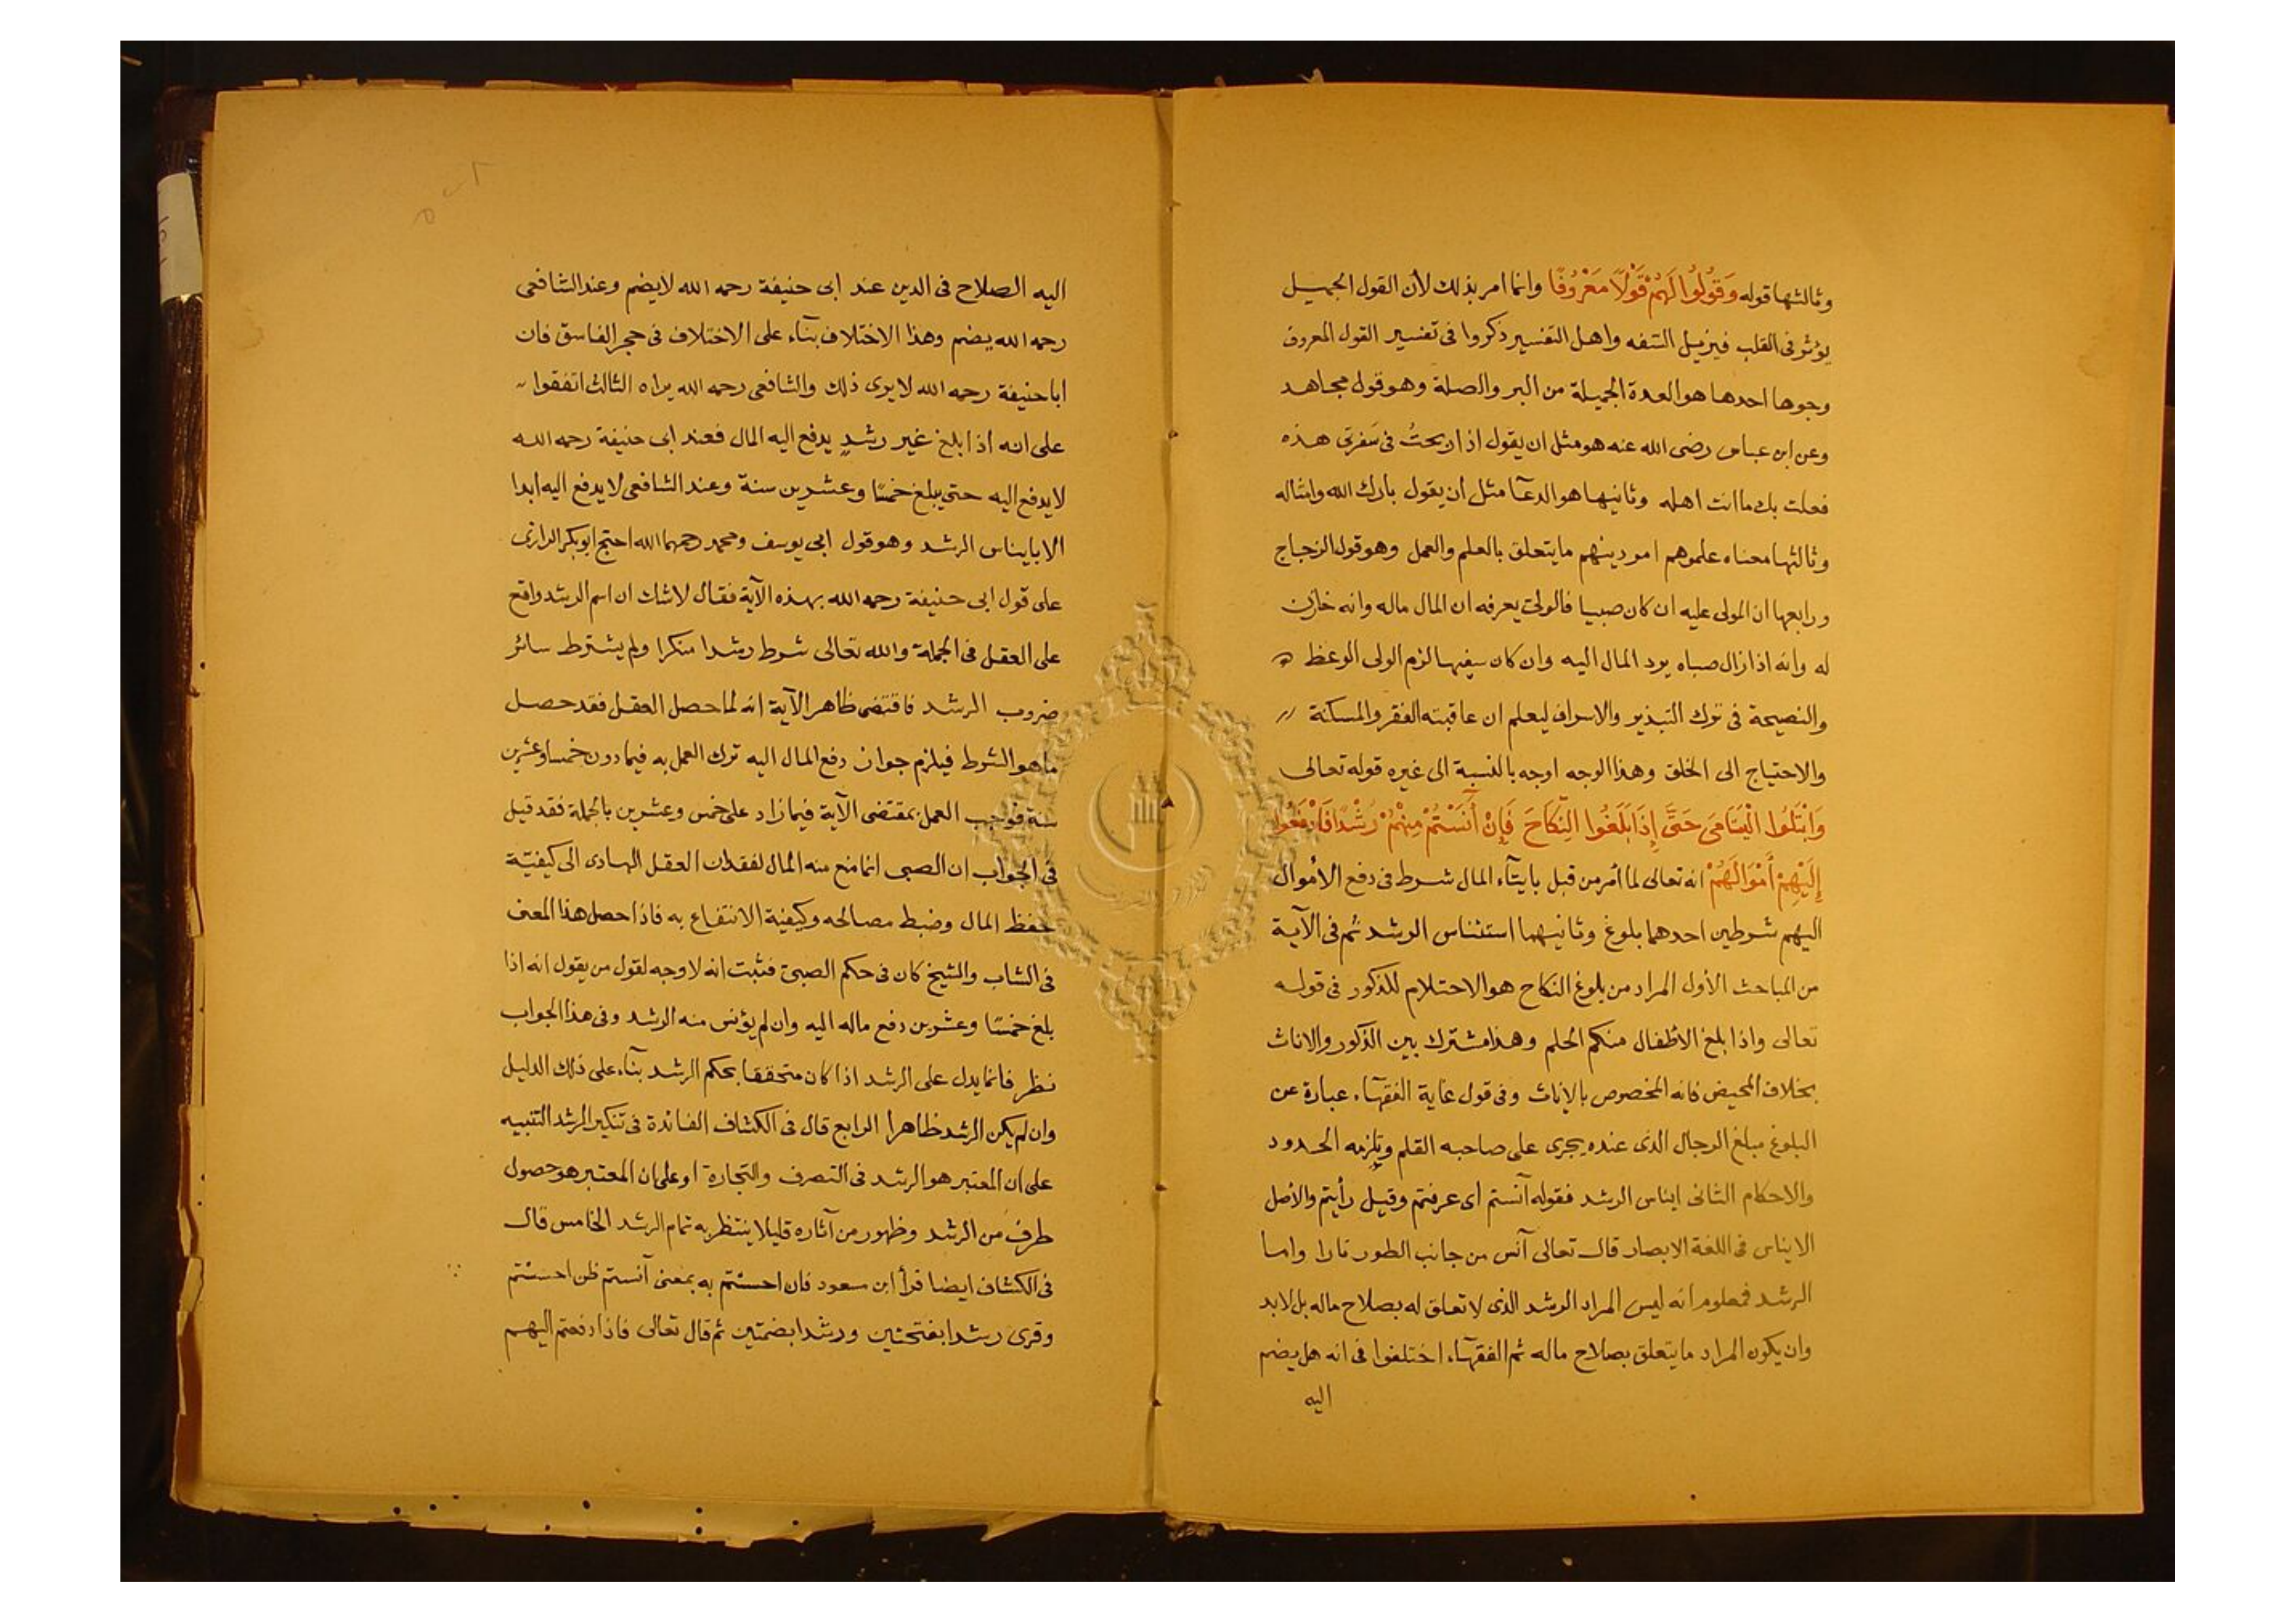 وثالثها قوله وَقُولُوا لَهُمْ قَوْلًا مَعْرُوفًا وانما امر بذلك لأن القول الجميل
يؤثر فى القلب فيزيل السفه واهل التفسير ذكروا فى تفسير القول المعروف
وجوها احدها هو العدة الجميلة من البر والصلة وهو قول مجاهد
وعن ابن عباس رضى الله عنه هو مثل ان يقول اذا ربحتُ فى سَفرتى هذه
فعلت بك ما انت اهله وثانيها هو الدعآ مثل أن يقول بارك الله وامثاله
وثالثها معناه علموهم امر دينهم ما يتعلق بالعلم والعمل وهو قول الزجاج
ورابعها ان المولى عليه ان كان صبيا فالولى يعرفه ان المال ماله وانه خازن
له وانه اذا زال صباه يرد المال اليه وان كان سفيها لزم الولى الوعظ
والنصيحة فى ترك التبذير والاسراف ليعلم ان عاقبته الفقر والمسكنة
والاحتياج الى الخلق وهذا الوجه اوجه بالنسبة الى غيره قوله تعالى
وَابْتَلُوا الْيَتَامَى حَتَّى إِذَا بَلَغُوا النِّكَاحَ فَإِنْ أٓنَسْتُمْ مِنْهُمْ رُشْدًا فَادْفَعُوا
إِلَيْهِمْ أَمْوَالَهُمْ انه تعالى لما أمر من قبل بايتآء المال شرط فى دفع الأموال
اليهم شرطين احدهما بلوغ وثانيهما استئناس الرشد ثم فى الآية
من المباحث الأول المراد من بلوغ النكاح هو الاحتلام المذكور فى قوله
تعالى واذا بلغ الاطفال منكم الحلم وهذا مشترك بين الذكور والاناث
بخلاف المحيض فانه المخصوص بالاناث وفى قول غاية الفقهآء عبارة عن
البلوغ مبلغ الرجال الذى عنده يجرى على صاحبه القلم ويلزمه الحدود
والاحكام الثانى ايناس الرشد فقوله آنستم أى عرفتم وقيل رأيتم والأصل
الايناس فى اللغة الابصار قال تعالى آنس من جانب الطور نارا واما
الرشد فمعلوم انه ليس المراد الرشد الذى لا تعلق له بصلاح ماله بل لابد
وان يكون المراد ما يتعلق بصلاح ماله ثم الفقهآء اختلفوا فى انه هل يضم
اليه
اليه الصلاح فى الدين عند ابى حنيفة رحمه الله لا يضم وعند الشافعى
رحمه الله يضم وهذا الاختلاف بنآء على الاختلاف فى حجر الفاسق فان
ابا حنيفة رحمه الله لا يرى ذلك والشافعى رحمه الله يراه الثالث اتفقوا
على انه اذا بلغ غير رشدٍ يدفع اليه المال فعند ابى حنيفة رحمه الله
لا يدفع اليه حتى يبلغ خمسًا وعشرين سنة وعند الشافعى لا يدفع اليه ابدا
الا بايناس الرشد وهو قول ابى يوسف ومحمد رحمهما الله احتج ابو بكر الرازى
على قول ابى حنيفة رحمه الله بهذه الآية فقال لاشك ان اسم الرشد واقع
على العقل فى الجملة والله تعالى شرط رشدا منكرا ولم يشترط سائر
ضروب الرشد فاقتضى ظاهر الآية انه لما حصل العقل فقد حصل
ما هو الشرط فيلزم جواز دفع المال اليه ترك العمل به فيما دون خمسا وعشرين
سنة فوجب العمل بمقتضى الآية فيما زاد على خمس وعشرين بالجملة فقد قيل
فى الجواب ان الصبى انما منع منه المال لفقدان العقل الهادى الى كيفيّة
حفظ المال وضبط مصالحه وكيفية الانتفاع به فاذا حصل هذا المعنى
فى الشاب والشيخ كان فى حكم الصبىّ فثبت انه لا وجه لقول من يقول انه اذا
بلغ خمسًا وعشرين دفع ماله اليه وان لم يؤنس منه الرشد وفى هذا الجواب
نظر فانما يدل على الرشد اذا كان متحققا بحكم الرشد بنآء على ذلك الدليل
وان لم يكن الرشد ظاهرا الرابع قال فى الكشاف الفائدة فى تنكير الرشد التنبيه
على ان المعتبر هو الرشد فى التصرف والتجارة او على ان المعتبر هو حصول
طرف من الرشد وظهور من آثاره قليلا ينتظر به تمام الرشد الخامس قال
فى الكشاف ايضا قرأ ابن مسعود فان احستم به بمعنى آنستم ظن احسستم
وقرى رشدا بفتحتين ورشدا بضمتين ثم قال تعالى فاذا دفعتم اليهم